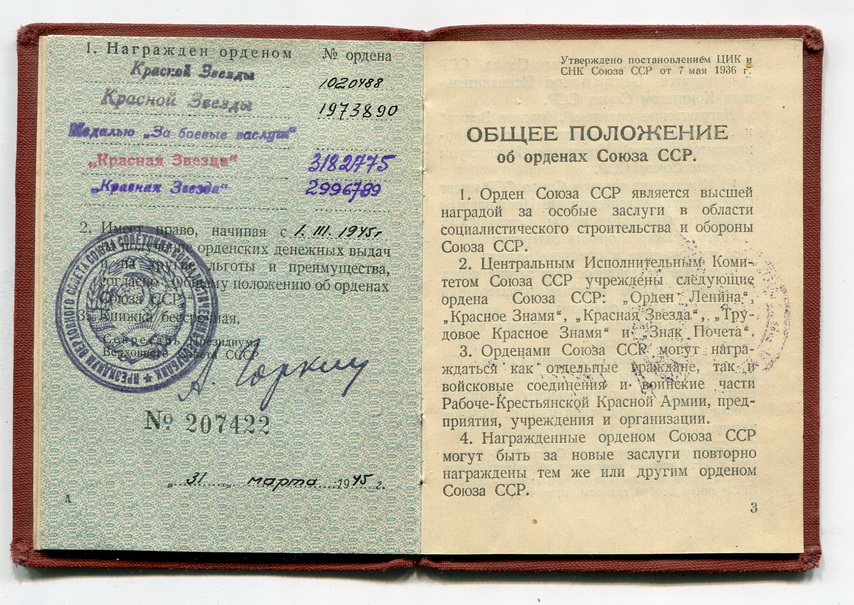 1. Награжден орденом № ордена
Красной Звезды 1020488
Красной Звезды 1973890
Медалью „За боевые заслуги"
„Красная Звезда" 3182775
„Красная Звезда" 2996789
2. Имеет право, начиная с 1. III. 1945г
на получение орденских денежных выдач
и на другие льготы и преимущества,
согласно Общему положению об орденах
Союза ССР.
3. Книжка бессрочная.
Секретарь Президиума
Верховного Совета СССР
А. Горкин
№ 207422
„31 „ марта 1945 г.
А
ПРЕЗИДИУМ ВЕРХОВНОГО СОВЕТА СОЮЗА СОВЕТСКИХ СОЦИАЛИСТИЧЕСКИХ РЕСПУБЛИК
Утверждено постановлением ЦИК и
СНК Союза ССР от 7 мая 1936 г.
ОБЩЕЕ ПОЛОЖЕНИЕ
об орденах Союза ССР.
1. Орден Союза ССР является высшей
наградой за особые заслуги в области
социалистического строительства и обороны
Союза ССР.
2. Центральным Исполнительным Коми-
тетом Союза ССР учреждены следующие
ордена Союза ССР: „Орден Ленина",
„Красное Знамя", „Красная Звезда", „Тру-
довое Красное Знамя" и „Знак Почета".
3. Орденами Союза ССР могут награ-
ждаться как отдельные граждане, так и
войсковые соединения и воинские части
Рабоче-Крестьянской Красной Армии, пред-
приятия, учреждения и организации.
4. Награжденные орденом Союза ССР
могут быть за новые заслуги повторно
награждены тем же или другим орденом
Союза ССР.
3